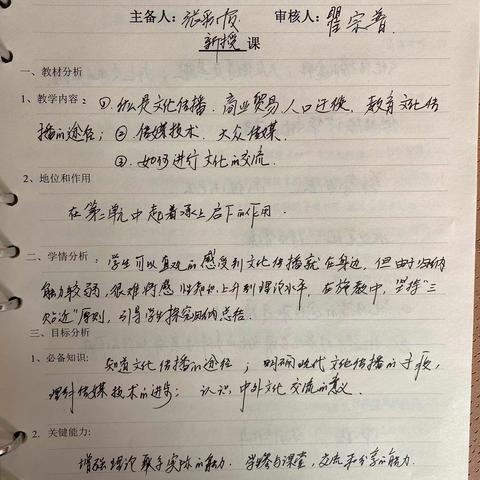 主备人：张彩霞 审核人：瞿宗普
新授 课
一、教材分析
1、教学内容：①什么是文化传播．商业贸易，人口迁徙，教育文化传
播的途径；②．传媒技术．大众传媒．
③．如何进行文化的交流．
2、地位和作用
在第二单元中起着承上启下的作用．
二、学情分析：学生可以直观的感受到文化传播就在身边，但由于归纳
能力较弱，很难将感性知识上升到理论水平，在施教中，坚持"三
贴近"原则，引导学生探究归纳总结．
三、目标分析
1、必备知识：知道文化传播的途径；明确现代文化传播的手段，
理解传媒技术的进步；认识中外文化交流的意义．
2．关键能力：
增强理论联系实际的能力．学参与课堂，交流和分享的能力．